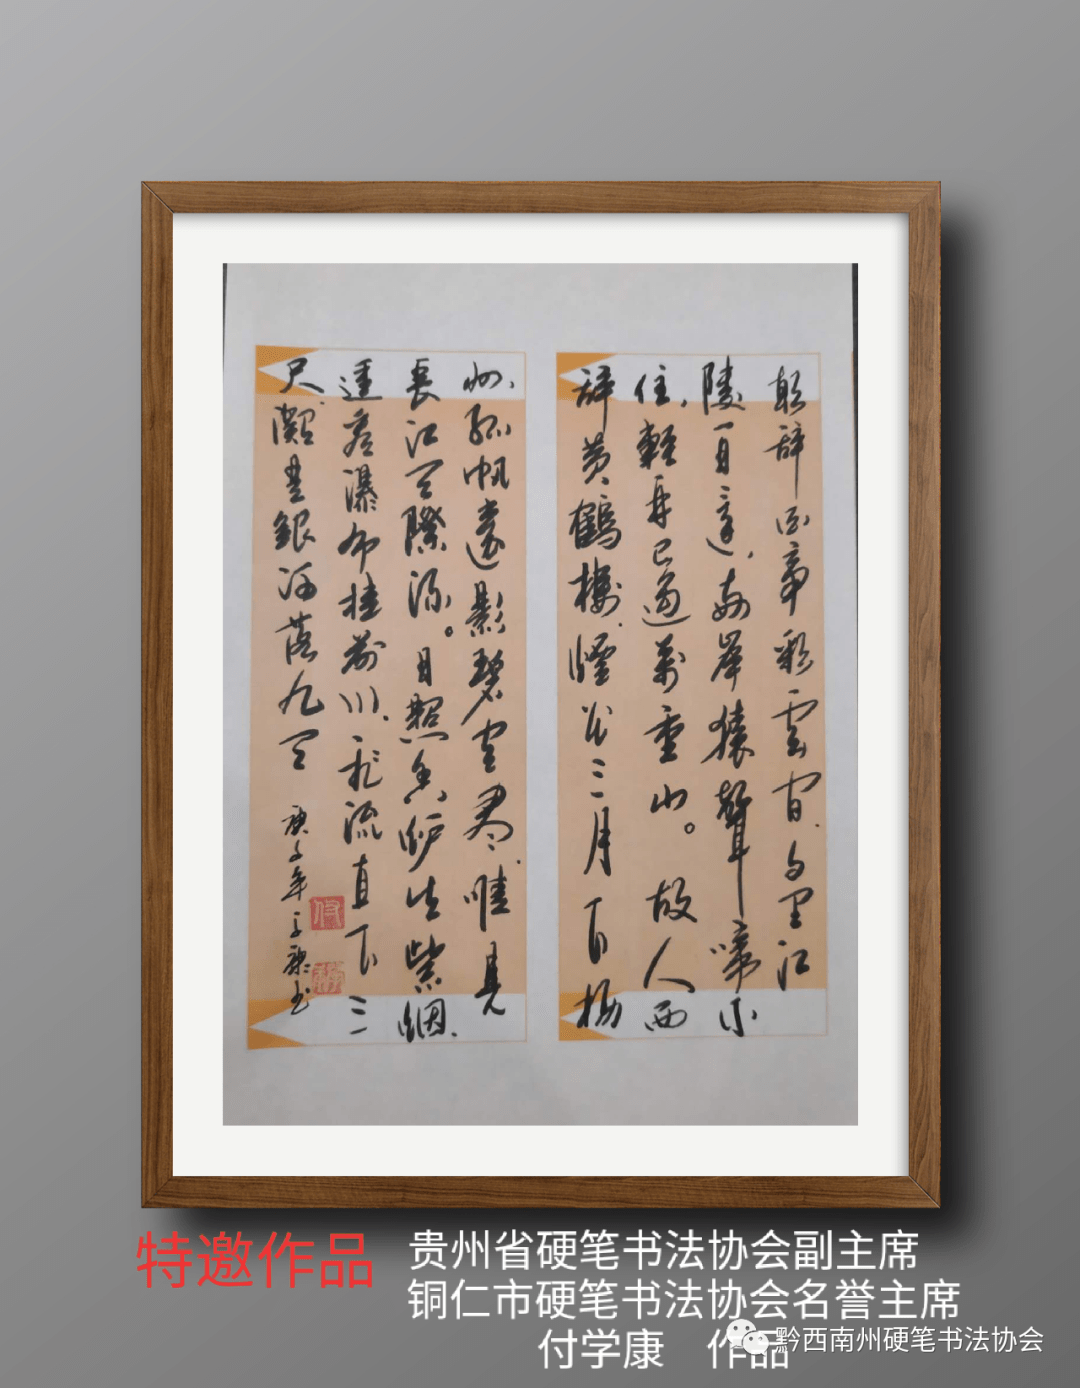 朝辞白帝彩雲间.千里江
陵一日還,两岸猿聲啼不
住,輕舟已過萬重山。故人西
辞黄鶴樓.煙花三月下揚
州,孤帆遠影碧空尽.唯見
長江天際流。日照香炉生紫烟.
遥看瀑布挂前川.飛流直下三
尺.疑是銀河落九天 庚子年学康书
特邀作品
贵州省硬笔书法协会副主席
铜仁市硬笔书法协会名誉主席
付学康 作品
黔西南州硬笔书法协会